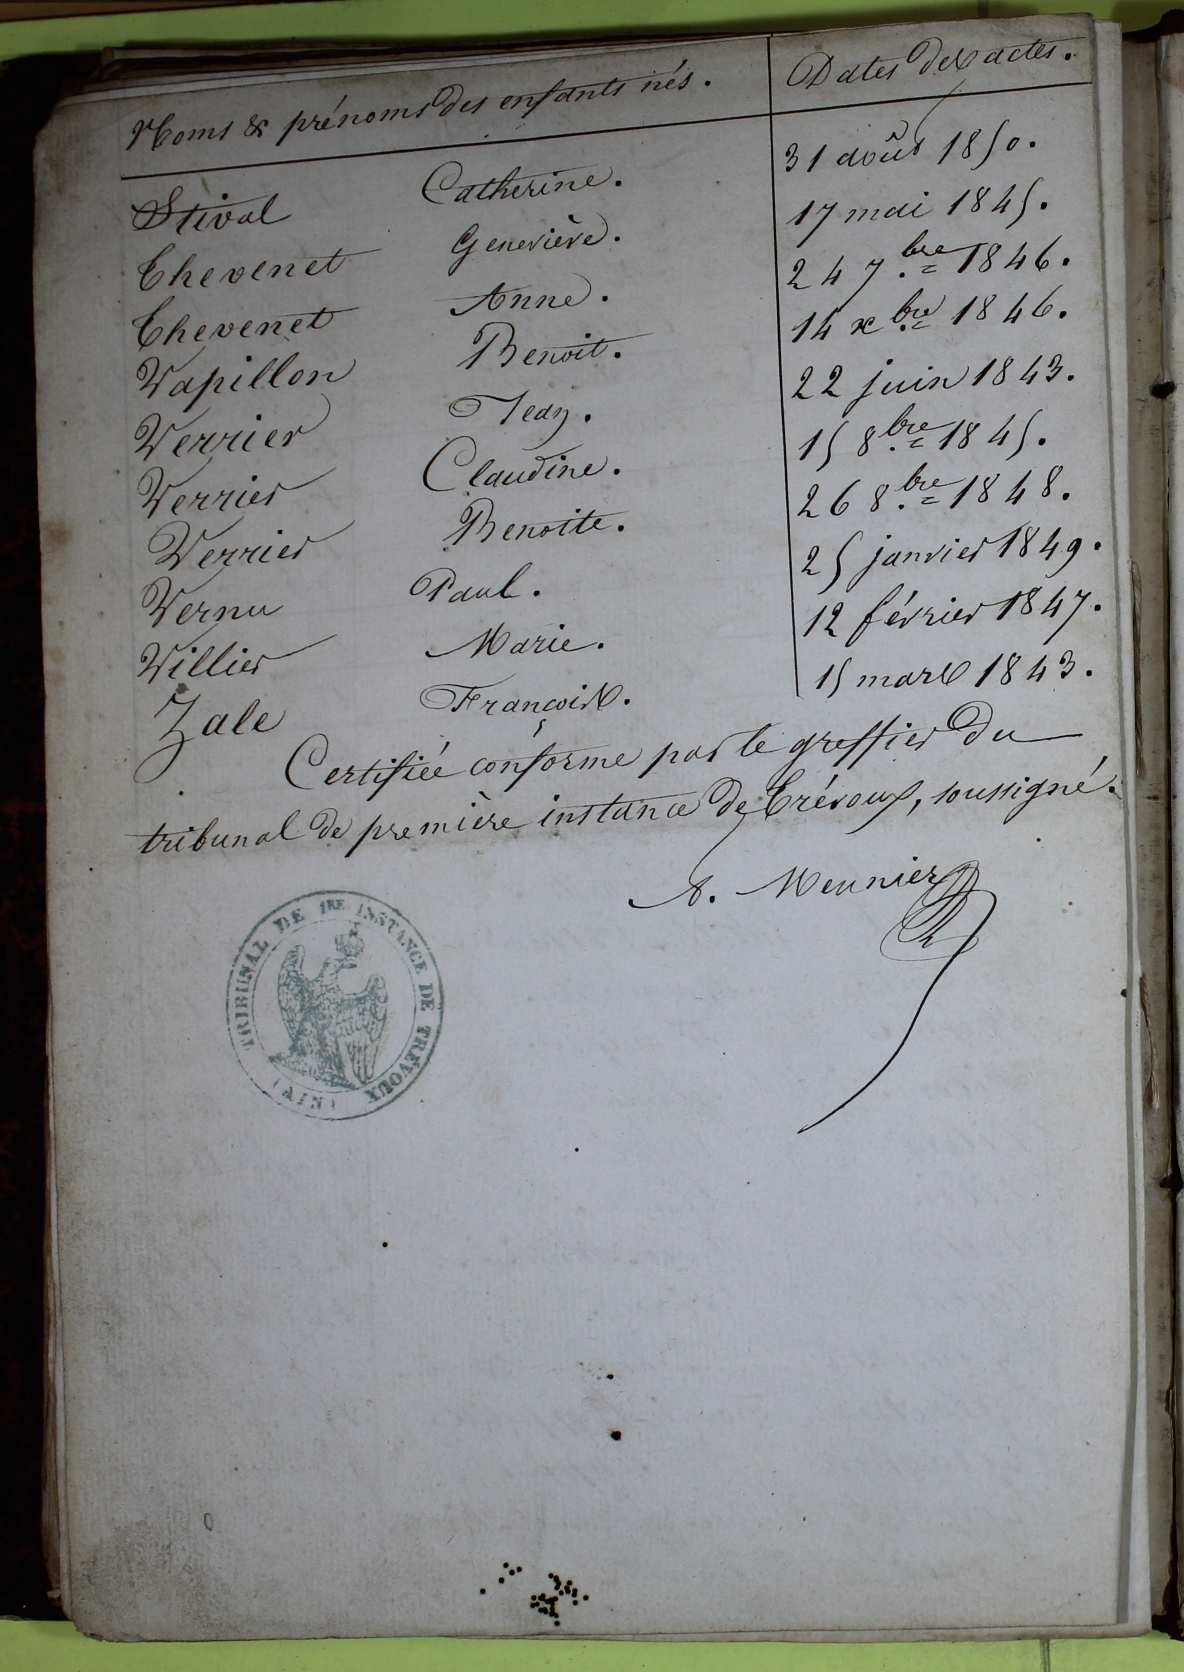 Noms & prénoms des enfants nés. Dates des actes.
Stival Catherine. 31 août 1850.
Thevenet Geneviève. 17 mai 1845.
Thevenet Anne. 24 7.bre 1846.
Vapillon Benoit. 14 xbre 1846.
Verrier Jean. 22 juin 1843.
Verrier Claudine. 15 8bre 1845.
Verrier Benoite. 26 8.bre 1848.
Vernu Paul. 25 janvier 1849.
Villier Marie. 12 février 1847.
Zale François. 15 mars 1843.
Certifiée conforme par le greffier du
tribunal de première instance de Trévoux, soussigné.
A. Meunier
TRIBUNAL DE 1RE INSTANCE DE TRÉVOUX
(AIN)